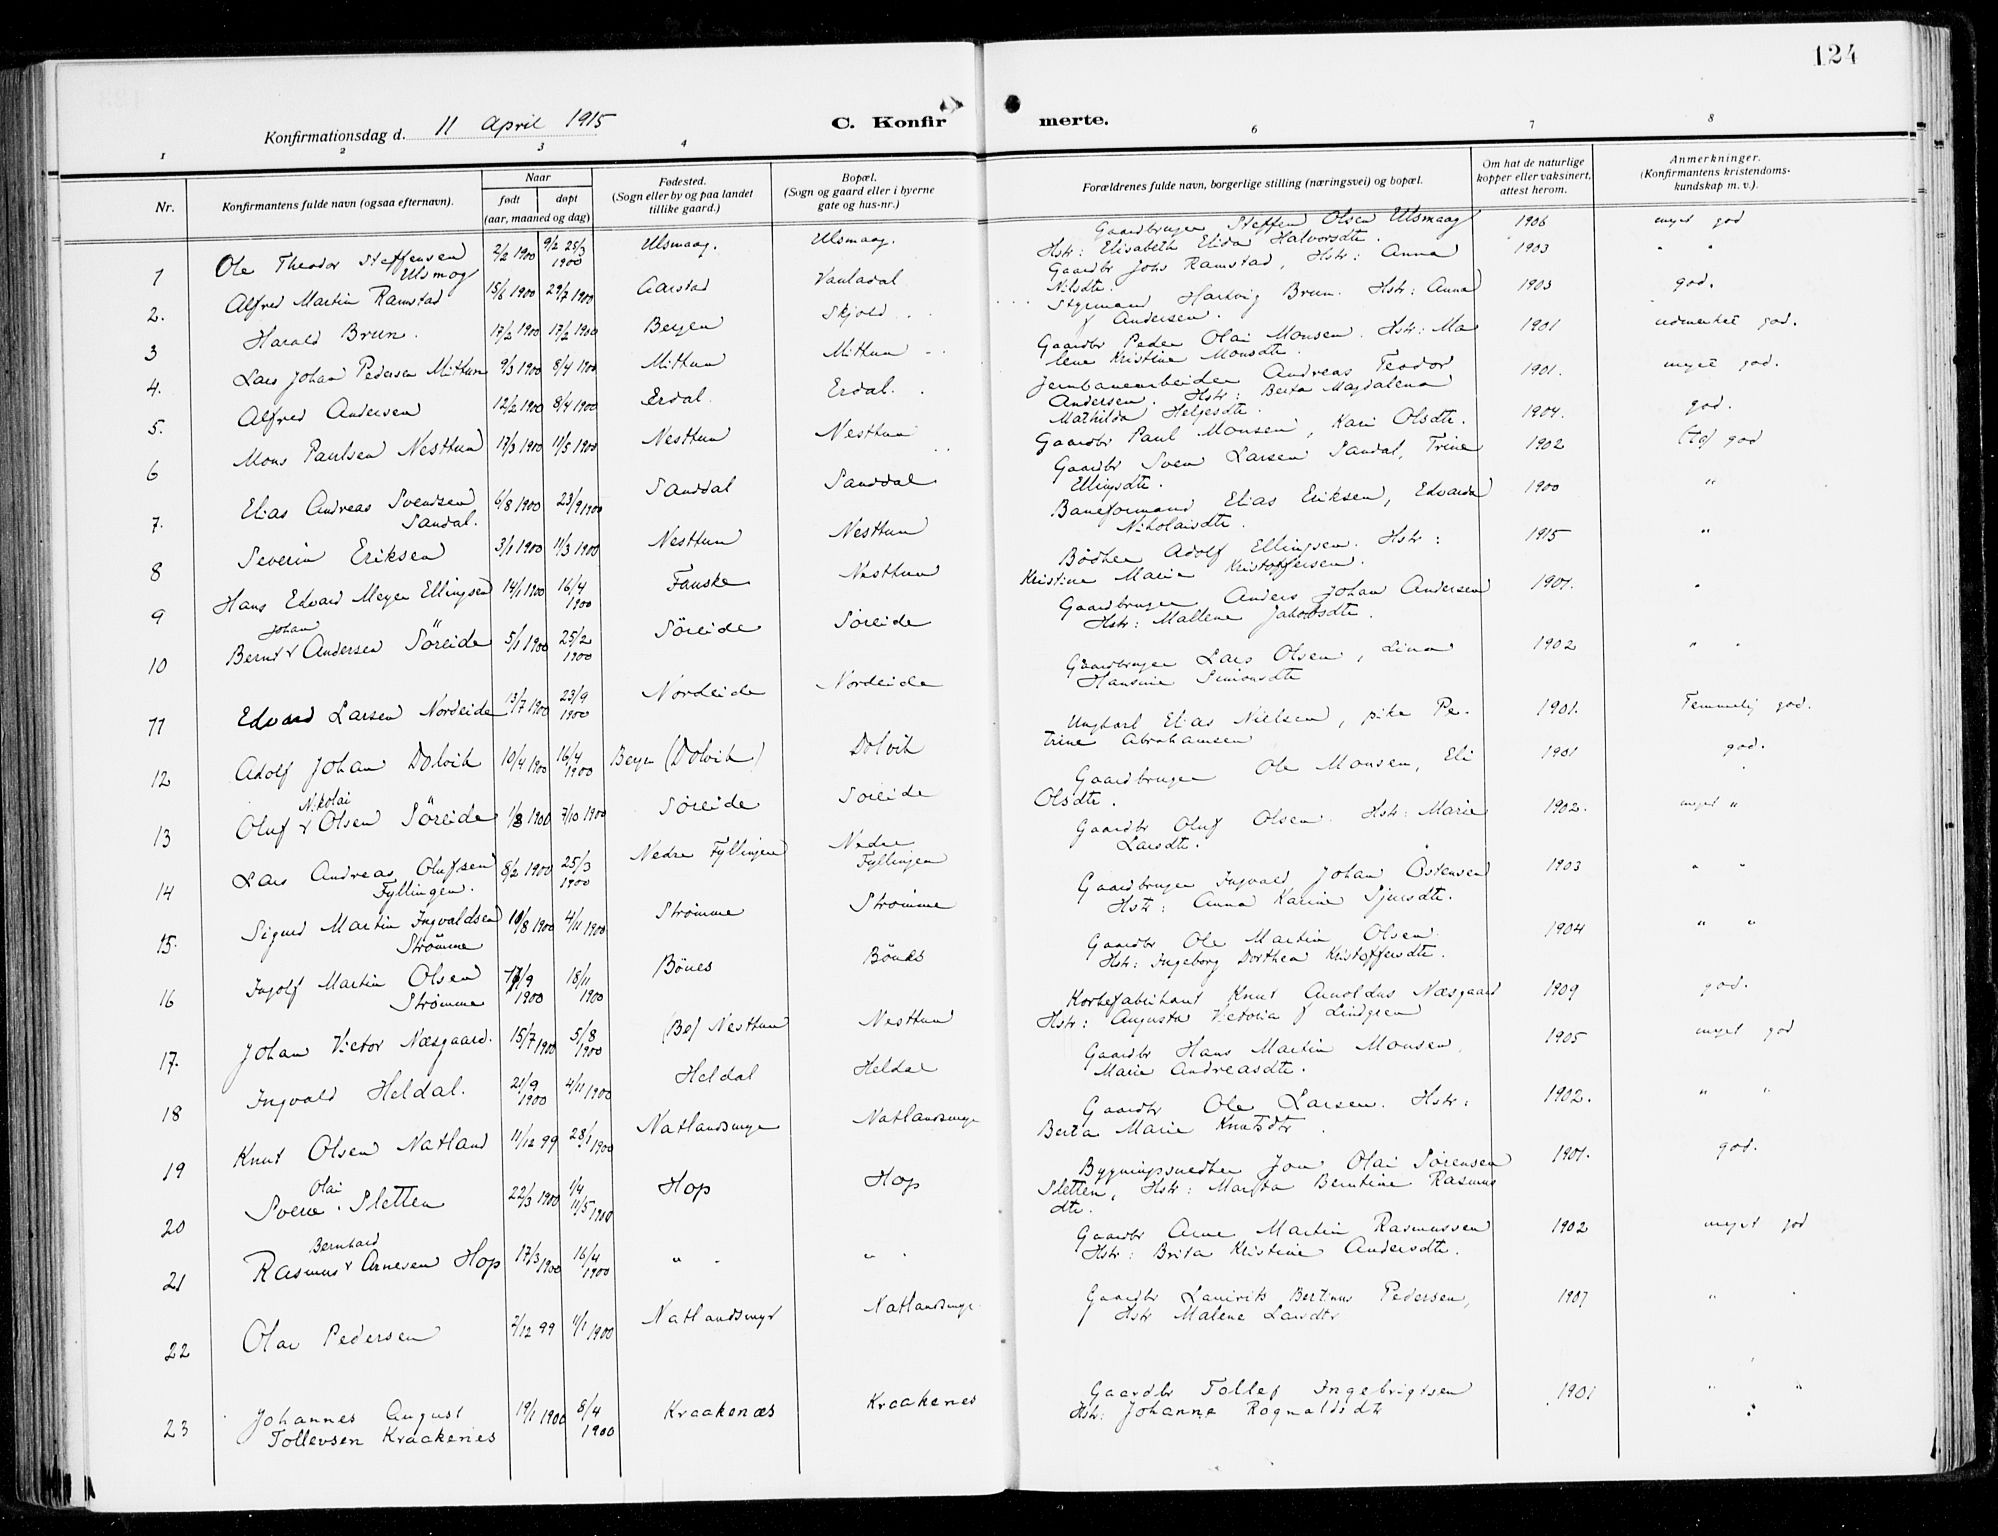 124
Konfirmationsdag d. 11 April 1915
C. Konfirmerte.
1 2 3 4 6 7 8
Nr. Konfirmantens fulde navn (ogsaa efternavn). Naar født døpt (aar, maaned og dag) Fødested. (Sogn eller by og paa landet tillike gaard.) Bopæl. (Sogn og gaard eller i byerne gate og hus-nr.) Forældrenes fulde navn, borgerlige stilling (næringsvei) og bopæl. Om hat de naturlige kopper eller vaksinert, attest herom. Anmerkninger. (Konfirmantens kristendomskundskap m. v.).
1 Ole Theodor Steffensen Ulsmog 2/2 1900 9/2 25/3 1900 Ulsmaag. Ulsmaag. Gaardbruger Steffen Olsen Ulsmaag Hstr: Elisabeth Elida Halvorsdtr. 1906 meget god
2. Alfred Martin Ramstad 15/6 1900 29/7 1900 Aarstad Vauladal Gaardbr Johs Ramstad, Hstr: Anna Nilsdtr. 1903 " "
3 Harald Brun. 17/2 1900 17/2 1900 Bergen Skjold Styrmand Hartvig Brun. Hstr: Anna f Andersen. 1903 god.
4. Lars Johan Pedersen Mittun 9/3 1900 8/4 1900 Mittun Mittun Gaardbr Peder Olai Monsen. Hstr: Malene Kristine Monsdtr. 1901 udmerket god.
5. Alfred Andersen 12/2 1900 8/4 1900 Erdal. Erdal. Jernbanearbeider Andreas Teodor Andersen. Hstr: Berta Magdalena Mathilda Helgesdtr. 1901. meget god.
6 Mons Paulsen Nesttun 17/3 1900 11/5 1900 Nesttun Nesttun Gaardbr Paul Monsen, Kari Olsdtr. 1904. god.
7. Elias Andreas Svendsen Sandal. 6/8 1900 23/9 1900 Sanddal Sanddal Gaardbr Sven Larsen Sandal, Trine Ellingsdtr. 1902 (tg) god
8 Severin Eriksen 3/1 1900 11/3 1900 Nesttun Nesttun Baneformand Elias Eriksen, Edvarda Nikolaisdtr. 1900 "
9 Hans Edvard Meyer Ellingsen 14/1 1900 16/4 1900 Fauske Nesttun Bödker Adolf Ellingsen. Hstr: Kristine Marie Kristoffersen. 1915 "
10 Bernt Johan Andersen Söreide 5/1 1900 25/2 1900 Söreide Söreide Gaardbruger Anders Johan Andersen Hstr: Mallene Jakobsdtr. 1901. "
11 Edvard Larsen Nordeide 13/7 1900 23/9 1900 Nordeide Nordeide Gaardbruger Lars Olsen, Lina Hansine Simonsdtr 1902 " "
12 Adolf Johan Dolvik 10/4 1900 16/4 1900 Bergen (Dolvik) Dolvik Ungkarl Elias Nielsen, pike Petrine Abrahamsen 1901. Temmelig god.
13 Oluf Nikolai Olsen Söreide 1/8 1900 7/10 1900 Söreide Söreide Gaardbruger Ole Monsen, Eli Olsdtr. 1901 god.
14 Lars Andreas Olufsen Fyllingen. 8/2 1900 25/3 1900 Nedre Fyllingen Nedre Fyllingen Gaardbr Oluf Olsen. Hstr: Marie Larsdtr. 1902. meget "
15. Sigurd Martin Ingvaldsen Strömme 10/8 1900 4/11 1900 Strømme Strømme Gaardbruger Ingvald Johan Östensen Hstr: Anna Karine Sjursdtr. 1903 " "
16 Ingolf Martin Olsen Strømme 17/9 1900 18/11 1900 Bönes Bönes Gaardbr Ole Martin Olsen Hstr: Ingeborg Dorthea Kristoffersdtr. 1904 " "
17. Johan Victor Næsgaard. 15/7 1900 5/8 1900 Nesttun Nesttun Korkefabrikant Knut Arnoldus Næsgaard Hstr: Augusta Victoria f Lindgren 1909 god.
18 Ingvald Heldal. 21/9 1900 4/11 1900 Heldal Heldal Gaardbr Hans Martin Monsen, Marie Andreasdtr. 1905 meget god
19 Knut Olsen Natland 11/12 99 28/1 1900 Natlandsmyr Natlandsmyr Gaardbr Ole Larsen. Hstr: Berta Marie Knutsdtr. 1902. " "
20 Sverre Olai Sletten 22/3 1900 1/4 11/5 1900 Hop Hop Bygningssnedker Jon Olai Sörensen Sletten, Hstr: Marta Berntine Rasmusdtr. 1901. god.
21 Rasmus Bernhard Arnesen Hop 17/3 1900 16/4 1900 " " Gaardbr Arne Martin Rasmussen Hstr: Brita Kristine Andersdtr. 1902 meget god
22 Olai Pedersen 2/12 99 1/1 1900 Natlandsmyr Natlandsmyr Gaardbr Laurits Bertinus Pedersen, Hstr Malene Larsdtr 1907 "
23 Johannes August Tollevsen Kraakenes 19/1 1900 8/4 1900 Kraakenæs Kraakenes Gaardbr Tollef Ingebrigtsen Hstr: Johanne Rognaldsdtr 1901 " "